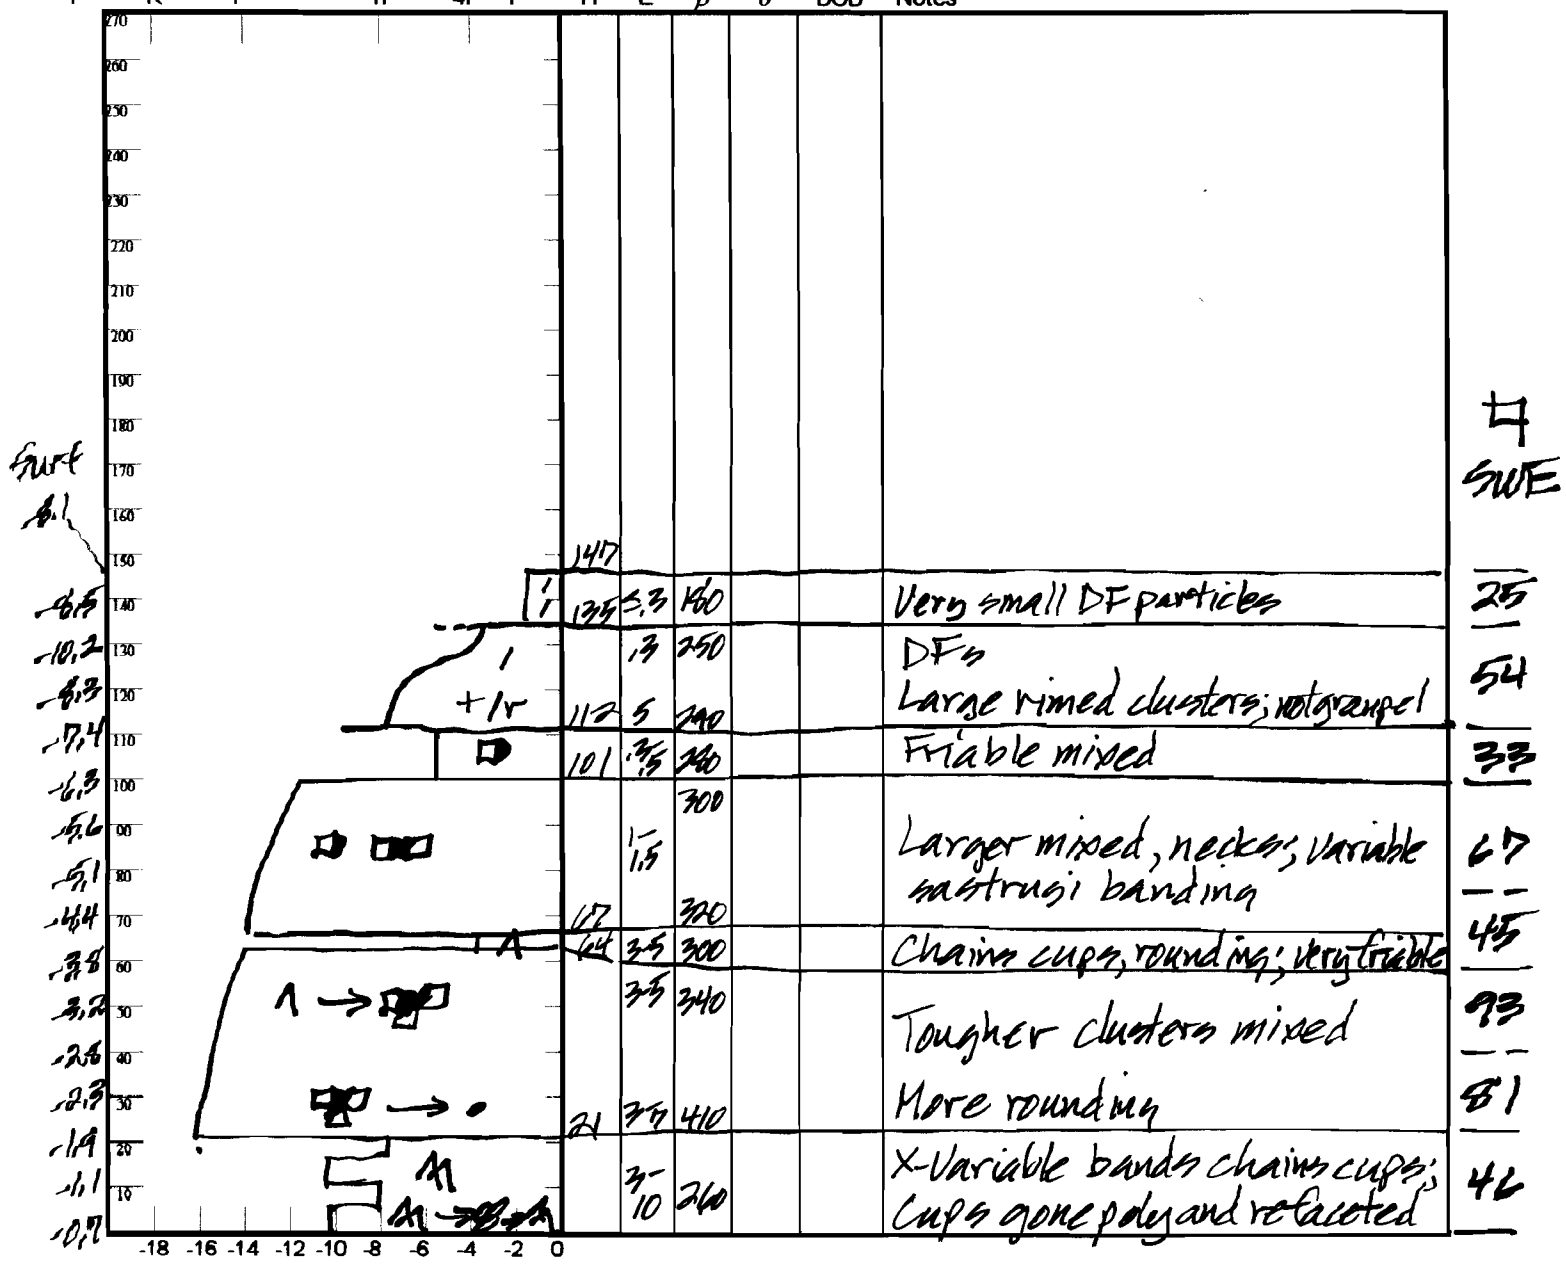 H E ρ DOD Notes
270
260
250
240
230
220
210
200
190
180
170
160
150
140
130
120
110
100
90
80
70
60
50
40
30
20
10
Surf
-8.1
-8.5
-10.2
-8.3
-7.4
-6.3
-5.6
-5.1
-4.4
-3.8
-3.2
-2.8
-2.3
-1.9
-1.1
-0.7
SWE
147
135 <.3 180 Very small DF particles 25
.3 250 DFs
+/r 112 5 290 Large rimed clusters; not graupel 54
101 .3-.5 280 Friable mixed 33
300
1-1.5 Larger mixed, necks; variable 67
sastrugi banding
67 320
64 3-5 300 Chains cups, rounding; very friable 45
3-5 340
Tougher clusters mixed 93
21 3-7 410 More rounding 81
3-10 260 X-Variable bands chains cups; 46
Cups gone poly and refaceted
-18 -16 -14 -12 -10 -8 -6 -4 -2 0